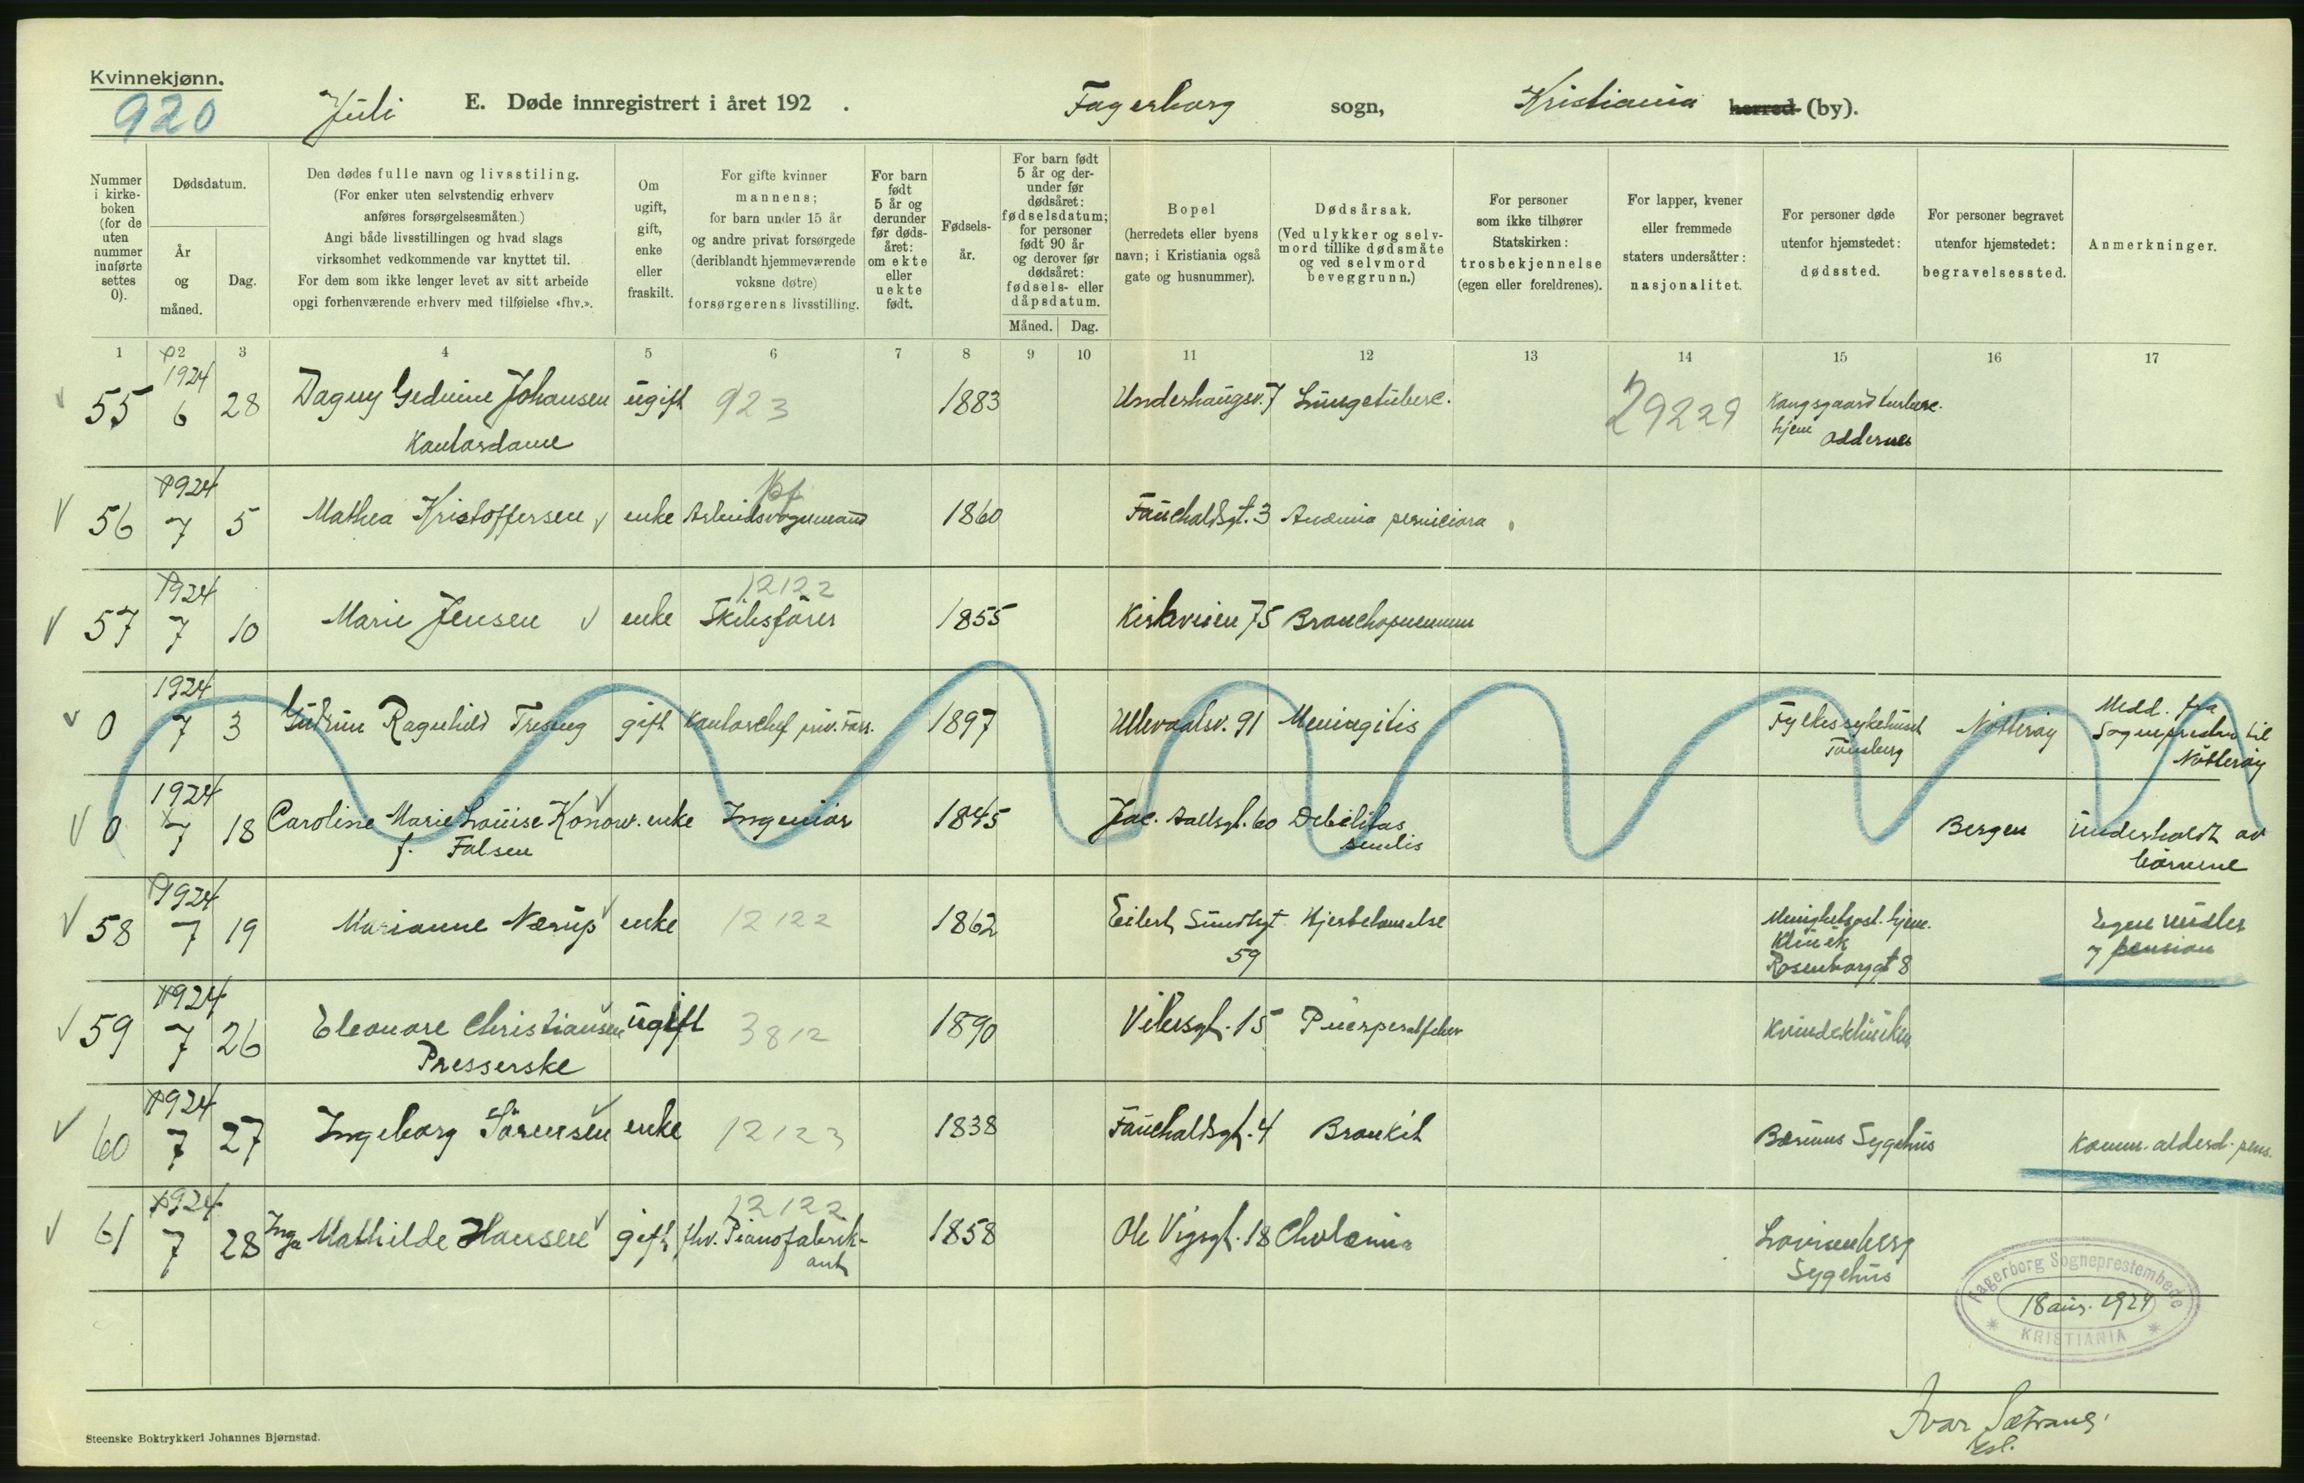 Kvinnekjønn.
920
Juli E. Døde innregistrert i året 192 . Fagerborg sogn, Kristiania herred (by).
Nummer i kirkeboken (for de uten nummer innførte settes 0).
Dødsdatum.
År og måned.
Dag.
Den dødes fulle navn og livsstiling.
(For enker uten selvstendig erhverv
anføres forsørgelsesmåten.)
Angi både livsstillingen og hvad slags
virksomhet vedkommende var knyttet til.
For dem som ikke lenger levet av sitt arbeide
opgi forhenværende erhverv med tilføielse «fhv.».
Om ugift, gift, enke eller fraskilt.
For gifte kvinner
mannens;
for barn under 15 år
og andre privat forsørgede
(deriblandt hjemmeværende
voksne døtre)
forsørgerens livsstilling.
For barn født 5 år og derunder før dødsåret: om ekte eller uekte født.
Fødselsår.
For barn født 5 år og derunder før dødsåret: fødselsdatum; for personer født 90 år og derover før dødsåret: fødsels- eller dåpsdatum.
Måned. Dag.
Bopel
(herredets eller byens
navn; i Kristiania også
gate og husnummer).
Dødsårsak.
(Ved ulykker og selv-
mord tillike dødsmåte
og ved selvmord
beveggrunn.)
For personer
som ikke tilhører
Statskirken:
trosbekjennelse
(egen eller foreldrenes).
For lapper, kvener
eller fremmede
staters undersåtter:
nasjonalitet.
For personer døde
utenfor hjemstedet:
dødssted.
For personer begravet
utenfor hjemstedet:
begravelsessted.
Anmerkninger.
1 2 3 4 5 6 7 8 9 10 11 12 13 14 15 16 17
1924
55 6 28 Dagny Gedine Johansen ugift 923 1883 Underhaugsv. 7 Lungetuberc. 29229
Kontordame
hjem Oddernes
1924
56 7 5 Mathea Kristoffersen enke 1860 Fauchaldsgt. 3 Anæmia perniciosa
1924 12122
57 7 10 Marie Jensen enke Skibsfører 1855 Kirkeveien 75 Bronchopneumon
1924
0 7 3 Gudrun Ragnhild gift Kontorchef priv. 1897 Ullevaalsv. 91 Meningitis Fylkessykehuset Nøtterøy Medd. fra
Tønsberg Sognepresten til
Nøtterøy
1924
0 7 18 Caroline Marie Louise Konow. enke Ingeniør 1845 Jac. Aallsgt. 60 Debilitas Bergen Underholdt av
f. Falsen senilis børnene
1924
58 7 19 Marianne Nærup enke 12122 1862 Eilert Sundtsgt. Hjertelammelse Menighetspl. hjem. Egne midler
59 Klinik og pension
Rosenborggt 8
1924
59 7 26 Eleonore Christiansen ugift 3812 1890 Vibesgt. 15 Puerperalfeber Kvindeklinikken
Presserske
1924
60 7 27 Ingeborg Sørensen enke 12123 1838 Fauchaldsgt. 4 Bronkit Bærums Sygehus Komm. alderd. pens.
1924 12122
61 7 28 Inga Mathilde Hansen gift fhv. Pianofabrik- 1858 Ole Vigsgt. 18 Cholæmia Lovisenberg
ant Sygehus
Fagerborg Sogneprestembede
18 aug. 1924
* KRISTIANIA *
Ivar Sætrang.
Steenske Boktrykkeri Johannes Bjørnstad.